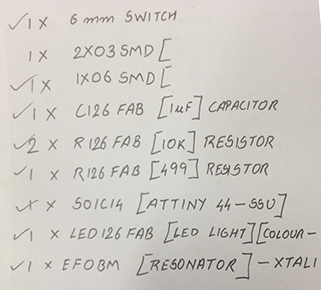 ✓1 X 6 mm SWITCH
1 X 2X03 SMD [
✓1 X 1X06 SMD [
✓1 X C126 FAB [1uF] CAPACITOR
✓2 X R126 FAB [10K] RESISTOR
✓1 X R126 FAB [499] RESISTOR
✓X SOIC14 [ATTINY 44-SSU]
✓1 X LED126 FAB [LED LIGHT] [COLOUR-
✓1 X EFOBM [RESONATOR] - XTAL1